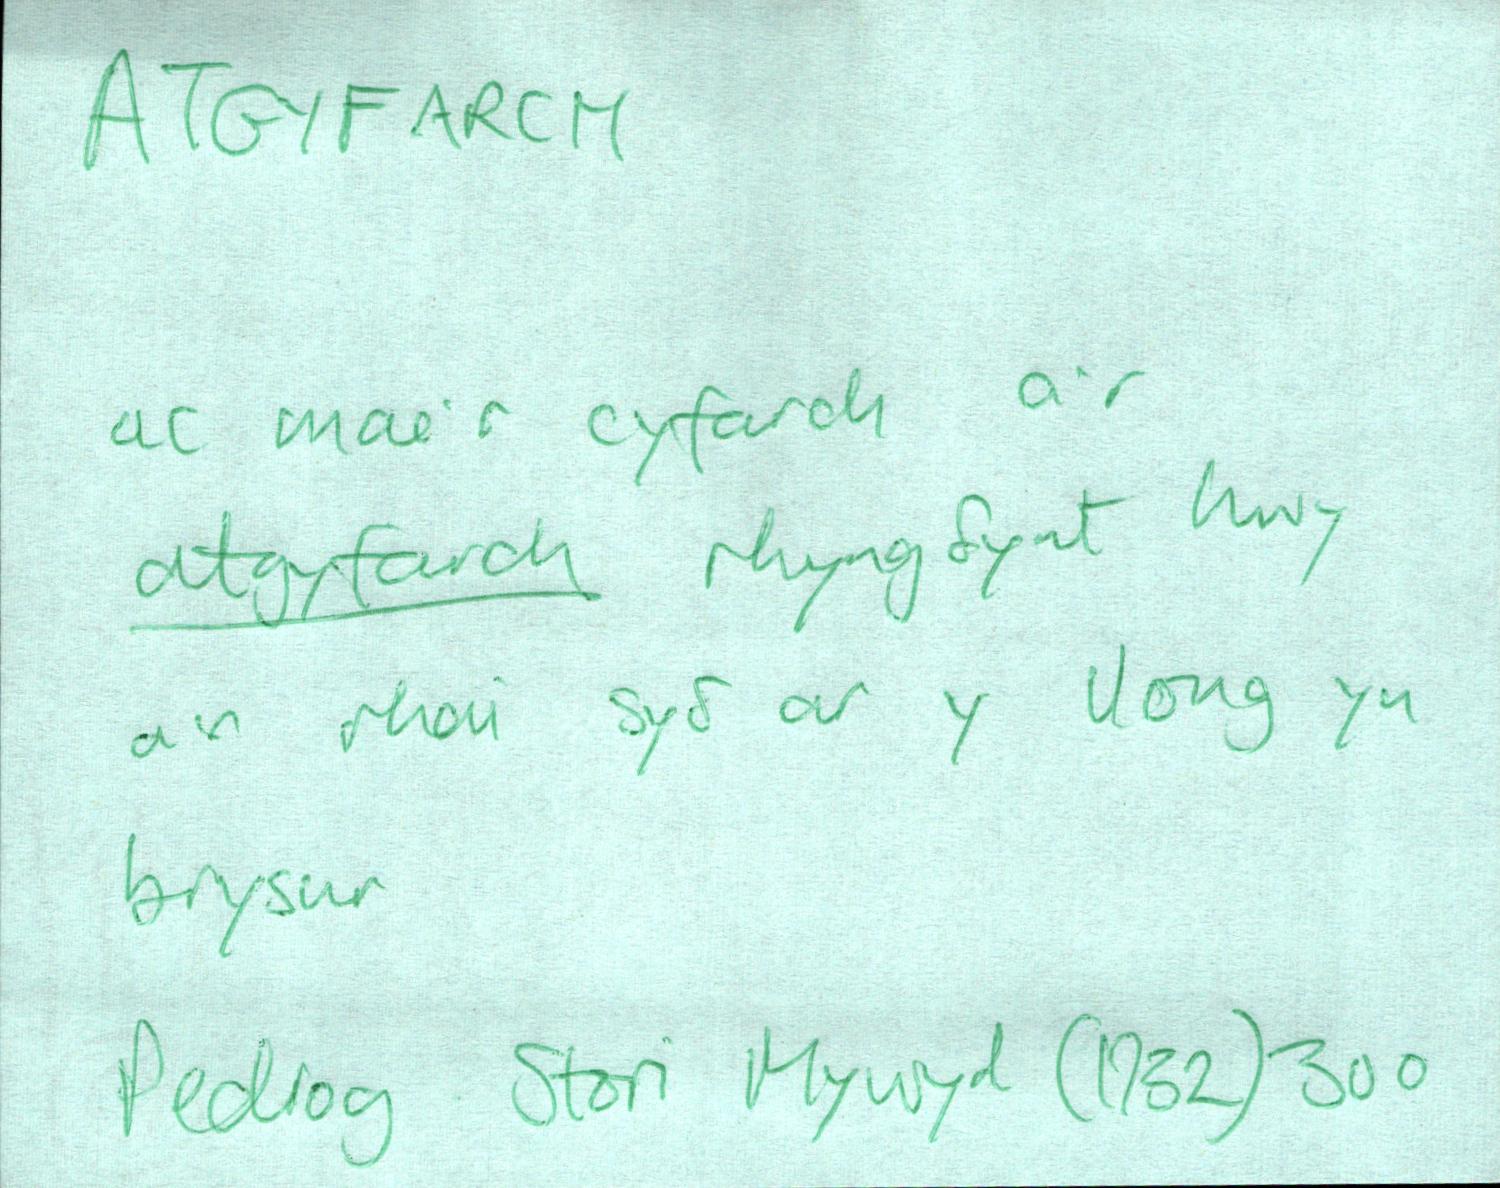 ATGYFARCH
ac mae'r cyfarch a'r
atgyfarch rhyngδynt hwy
a'r rhai syδ ar y llong yn
brysur
Pedrog Stori Mywyd (1932) 300